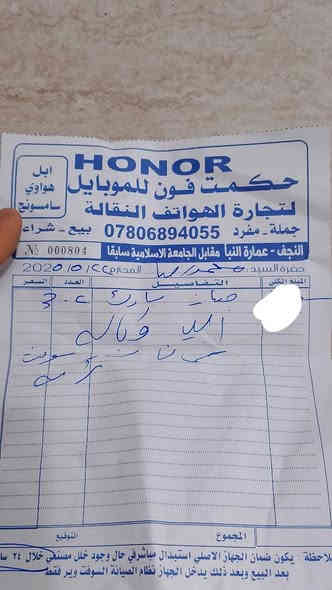 HONOR
ابل
هواوي
سامسونج
حكمت فون للموبايل
لتجارة الهواتف النقالة
جملة - مفرد 07806894055 بيع - شراء
النجف - عمارة النبأ مقابل الجامعة الاسلامية سابقا
№ 000804
حضرة السيد: محمد المحترم 2020
المبلغ الكلي التفاصيل العدد السعر
جهاز
المجموع
التوقيع
ملاحظة يكون ضمان الجهاز الاصلي استبدال مباشر في حال وجود خلل مصنعي خلال ٢٤ سا
بعد البيع وبعد ذلك يدخل الجهاز نظام الصيانة السوفت وير فقط